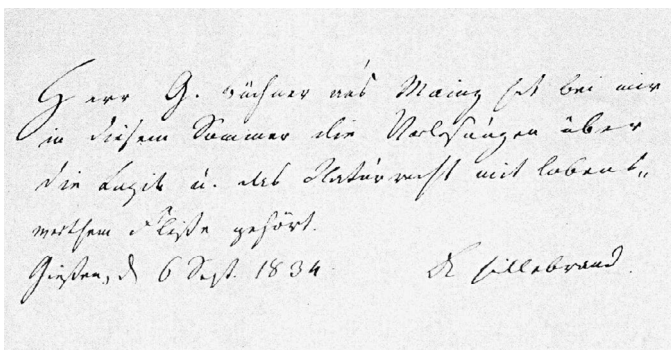 Herr G. Büchner aus Mainz hat bei mir
in diesem Sommer die Vorlesungen über
die Logik u. das Naturrecht mit lobens„
werthem Fleiße gehört.
Gießen, d 6 Sept. 1834 Dr Hillebrand.